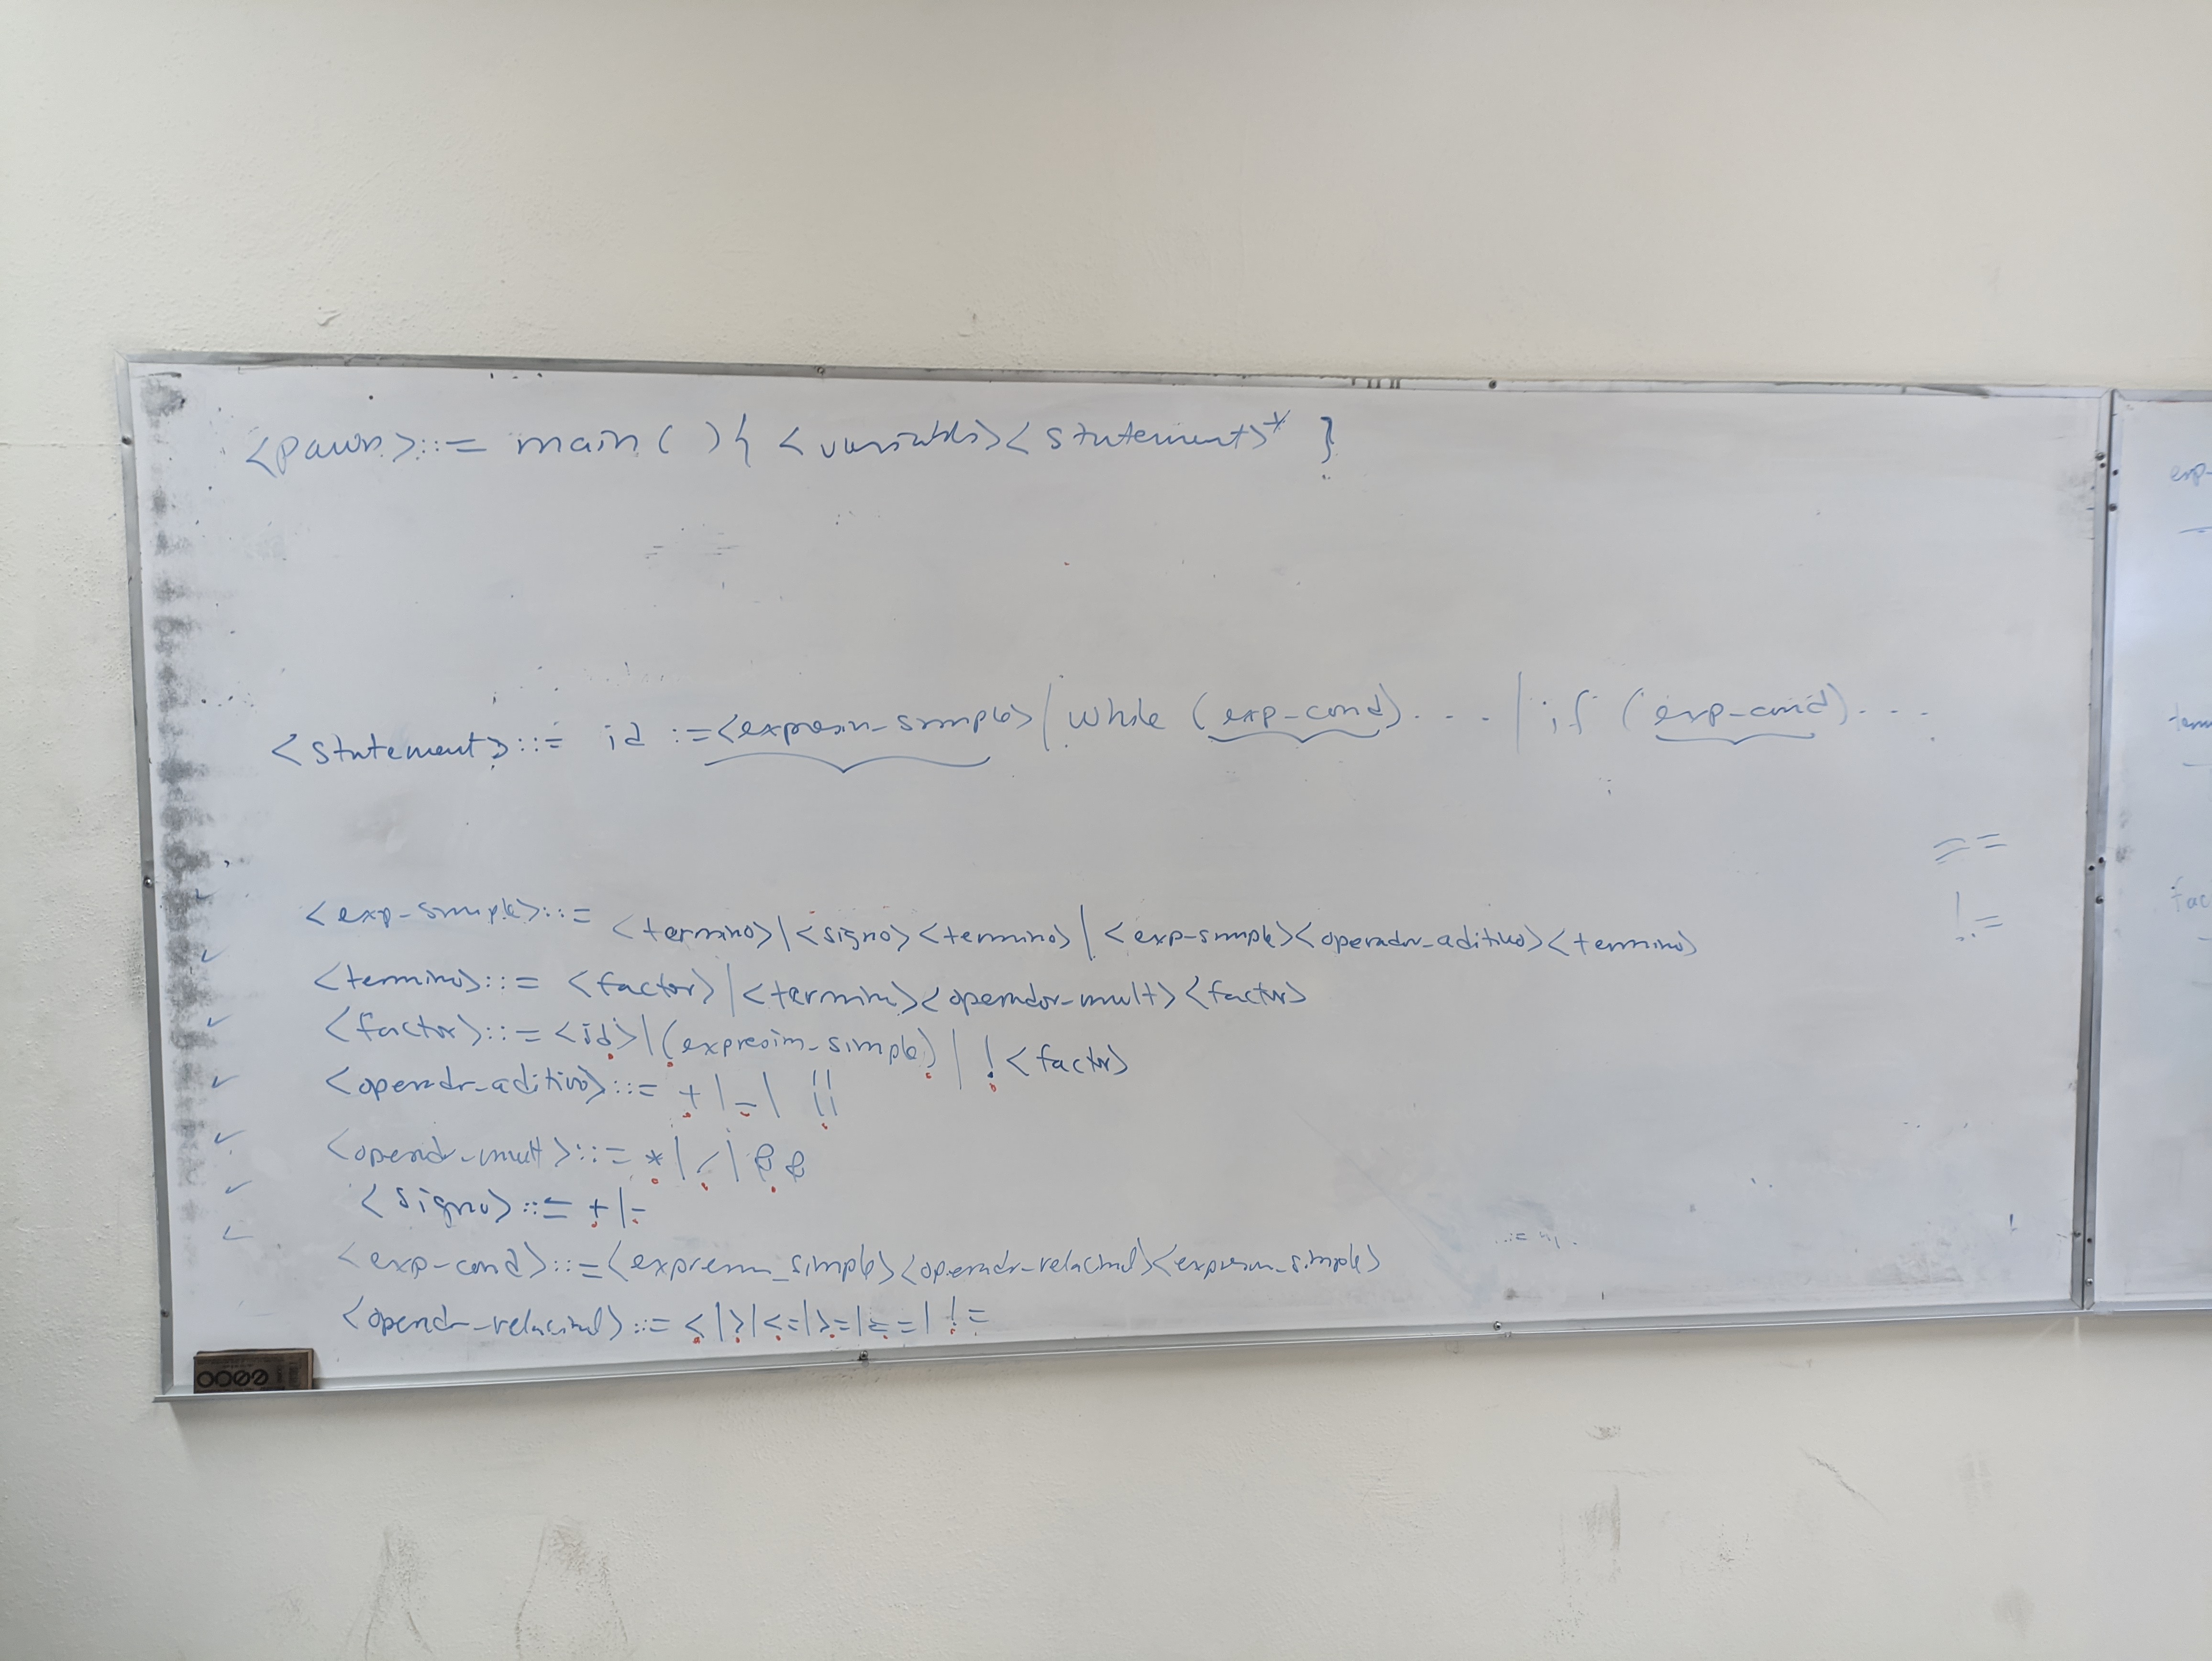 <pawn>::= main(){ <variables><statement>* }
<statement>::= id :=<expresion_simple>|while (exp-cond)....|if (exp-cond)....
==
!=
<exp-simple>::= <termino>|<signo><termino>|<exp-simple><operador_aditivo><termino>
<termino>::= <factor>|<termino><operador-mult><factor>
<factor>::=<id>|(expresion_simple)|!<factor>
<operador_aditivo>::= +|-| ||
<operador_mult>::= *|/|&&
<signo>::= +|-
<exp-cond>::=<expresion_simple><operador-relacional><expresion_simple>
<operador-relacional>::= <|>|<=|>=|==|!=
exp-
fac